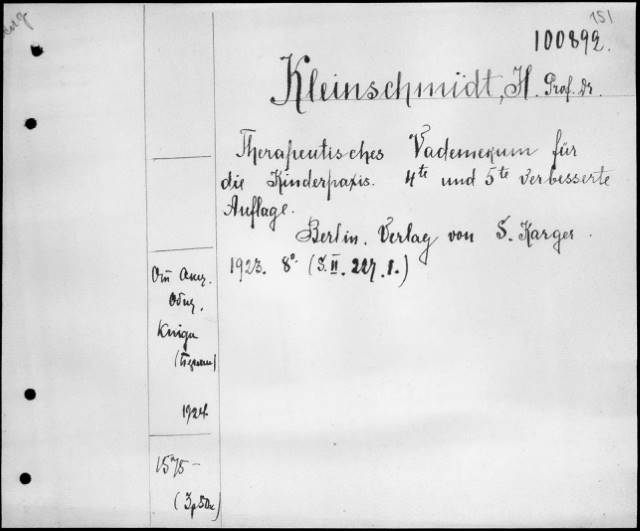 151
100892.
Kleinschmidt, H. Prof. Dr.
Therapeutisches Vademekum für
die Kinderpaxis. 4te und 5te verbesserte
Auflage.
Berlin. Verlag von S. Karger.
1923. 8º. (S. II. 227. 1.)
Общ.
Книга
1924
1575-